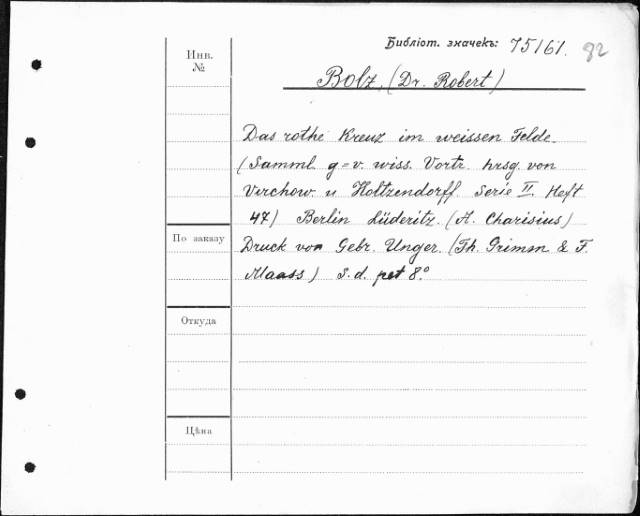 Библіот. значекъ: 75161. 92
Инв.
№
Bolz, (Dr. Robert)
Das rothe Kreuz im weissen Felde.
(Samml. g=v. wiss. Vortr. hrsg. von
Virchow. u Holtzendorff. Serie II. Heft
47) Berlin Lüderitz. (A. Charisius)
По заказу
Druck von Gebr. Unger. (Th. Grimm & F.
Maass) S. d. pet 8.°
Откуда
Цѣна